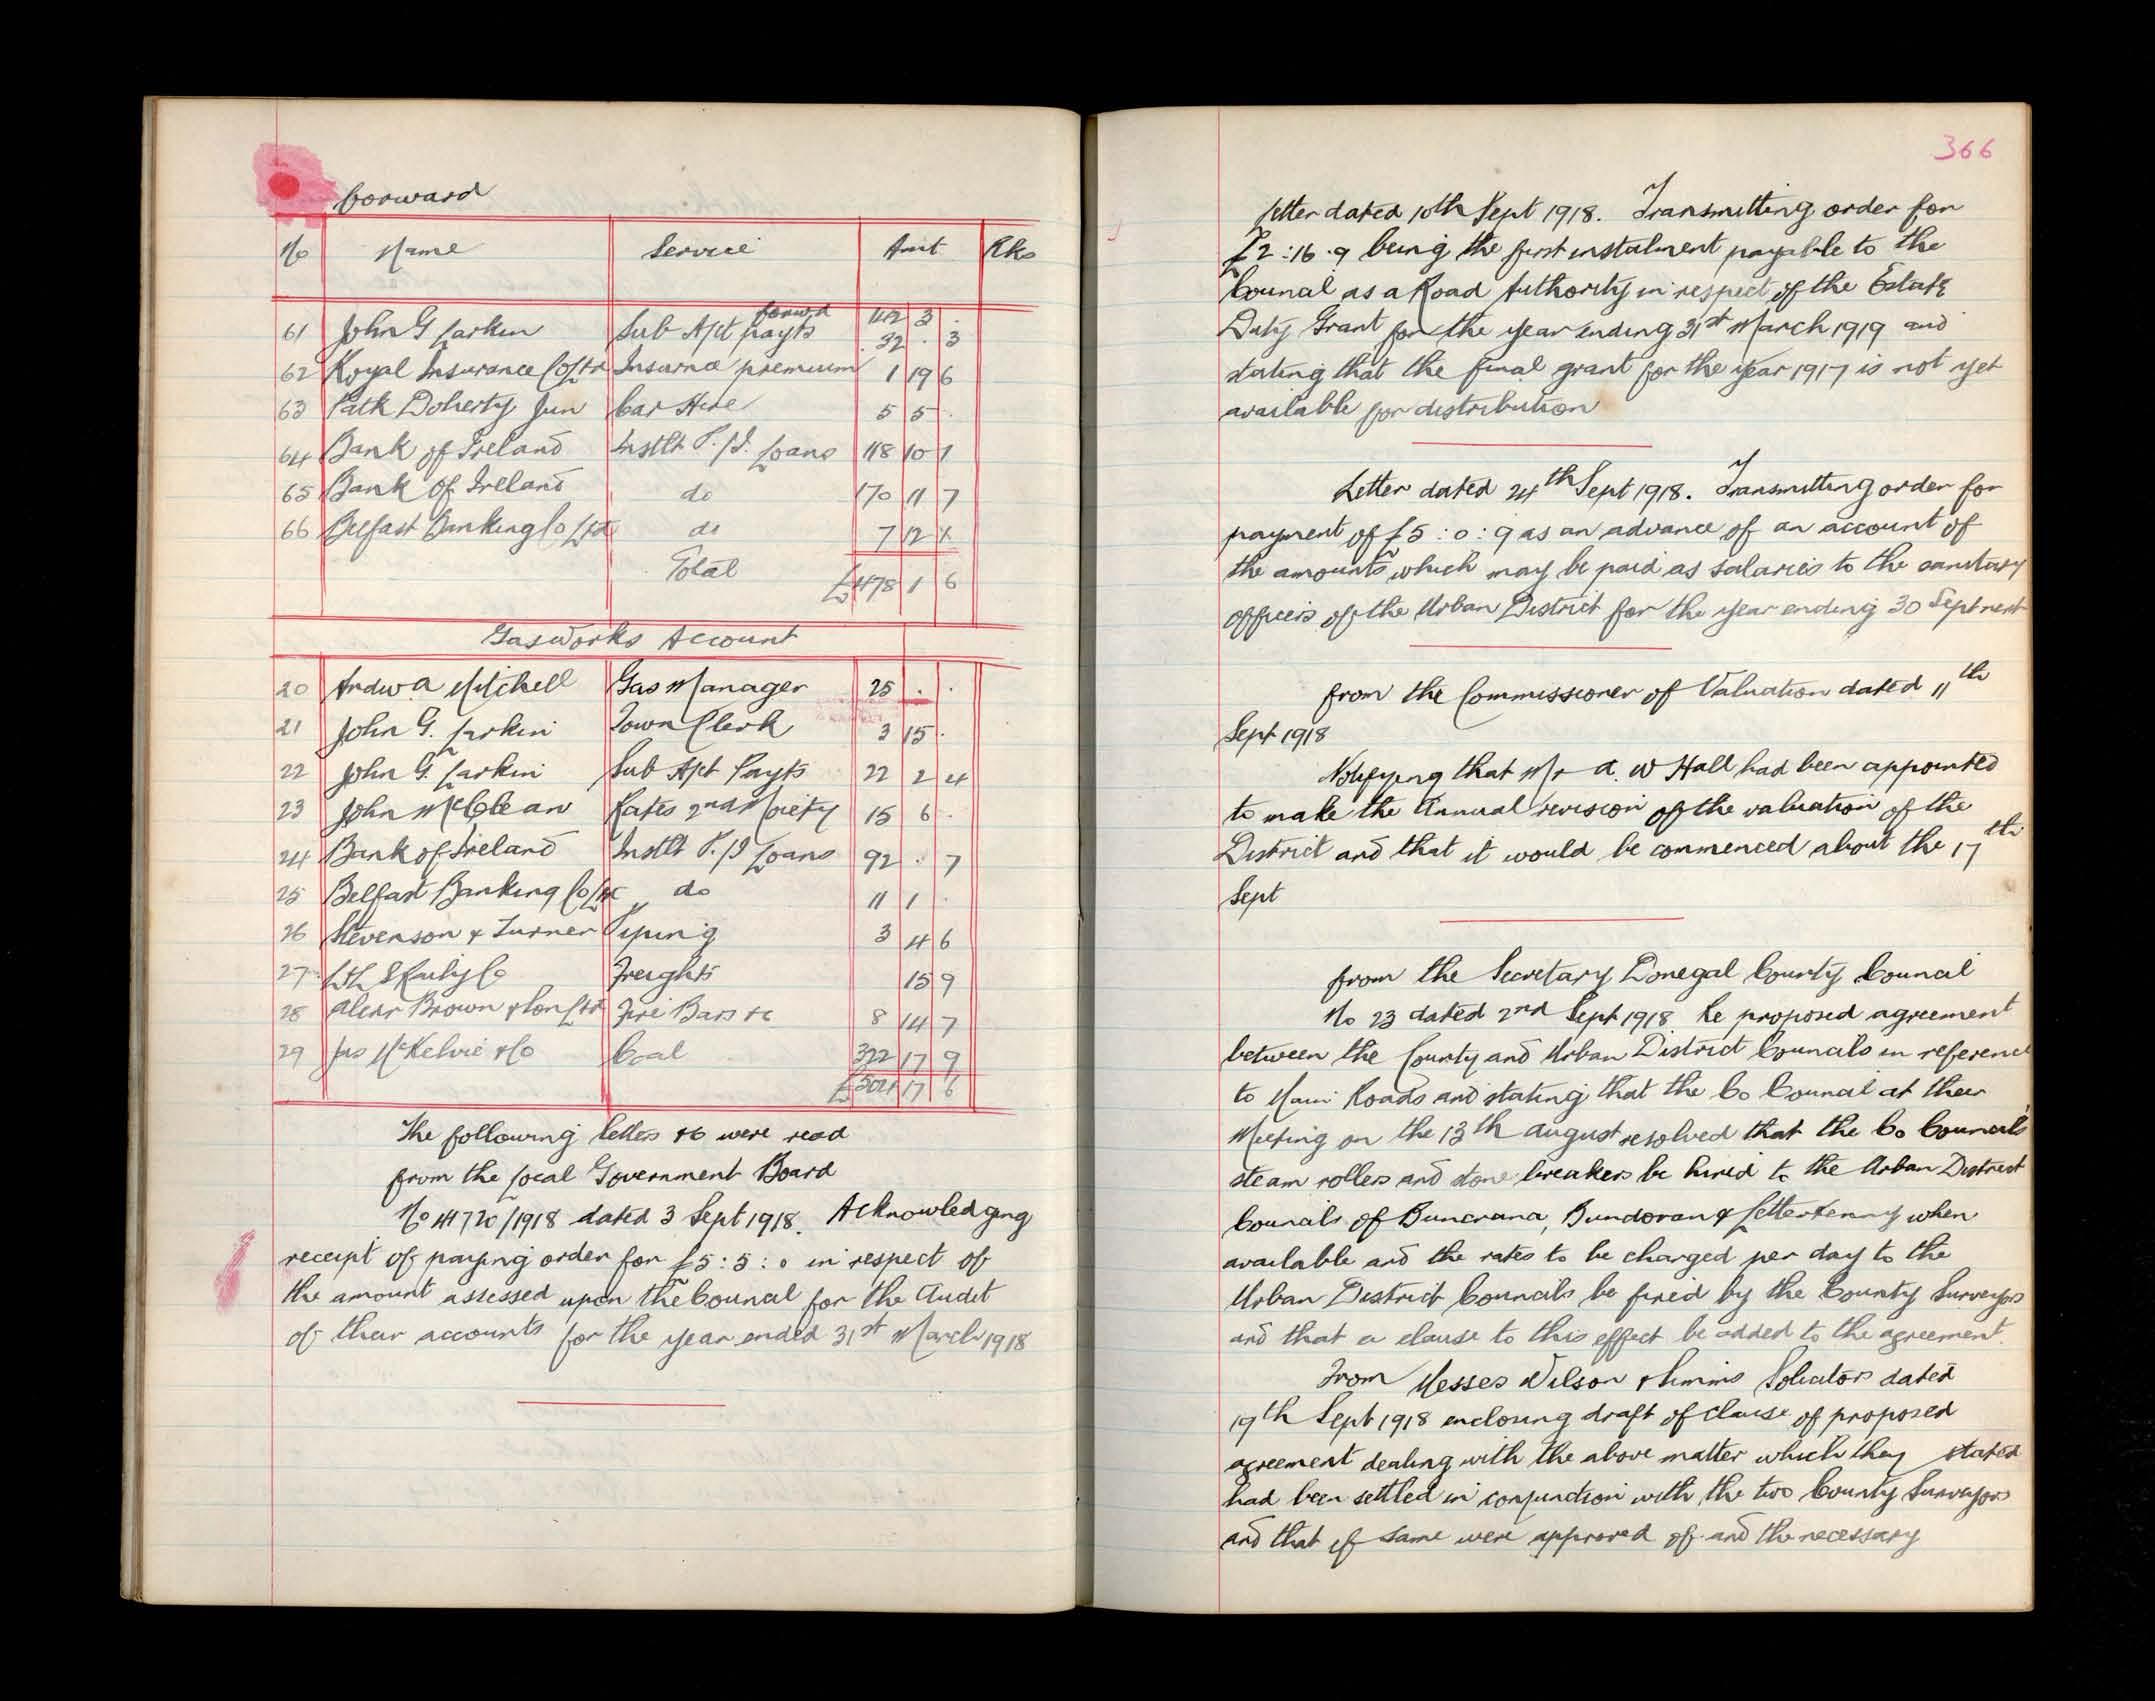 forward
No Name Service Amt Rks
forwd 142 3 .
61 John G Larkin Sub A/ct payts 32 . 3
62 Royal Insurance Co Ltd Insurnce premium 1 19 6
63 Patk Doherty Jun Car Hire 5 5 .
64 Bank of Ireland Instlt P./I. Loans 118 10 1
65 Bank of Ireland do 170 11 7
66 Belfast Banking Co Ltd do 7 12
Total £478 1 6
Gasworks Account
20 Andw A Mitchell Gas Manager 25 . .
21 John G. Larkin Town Clerk 3 15 .
22 John G. Larkin Sub A/ct Payts 22 2 4
23 John McClean Rates 2nd Moiety 15 6 .
24 Bank of Ireland Instlt P./I Loans 92 . 7
25 Belfast Banking Co Ltd do 11 1 .
26 Stevenson & Turner Piping 3 4 6
27 L & L S Railwy Co Freights 15 9
28 Alexr Brown & Son Ltd Fire Bars &c 8 14 7
29 Jas McKelvie & Co Coal 322 17 9
£504 17 6
The following letters &c were read
from the Local Government Board
No 41720/1918 dated 3 Sept 1918. Acknowledging
receipt of paying order for £5:5:0 in respect of
the amount assessed upon the Council for the Audit
of their accounts for the year ended 31st March 1918
366
Letter dated 10th Sept 1918. Transmitting order for
£2:16.9 being the first instalment payable to the
Council as a Road Authority in respect of the Estate
Duty Grant for the year ending 31st March 1919 and
stating that the final grant for the year 1917 is not yet
available for distribution
Letter dated 24th Sept 1918. Transmitting order for
payment of £5:0:9 as an advance of an account of
the amounts which may be paid as salaries to the sanitary
officers of the Urban District for the year ending 30 Sept next
from the Commissioner of Valuation dated 11th
Sept 1918
Notifying that Mr A. W Hall had been appointed
to make the Annual revision of the valuation of the
District and that it would be commenced about the 17th
Sept
from the Secretary Donegal County Council
No 23 dated 2nd Sept 1918 Re proposed agreement
between the County and Urban District Councils in reference
to Main Roads and stating that the Co Council at their
Meeting on the 13th August resolved that the Co Councils
steam rollers and stone breakers be hired to the Urban District
Councils of Buncrana, Bundoran & Letterkenny when
available and the rates to be charged per day to the
Urban District Councils be fixed by the County Surveyors
and that a clause to this effect be added to the agreement.
From Messes Wilson & Simms Solicitors dated
19th Sept 1918 enclosing draft of clause of proposed
agreement dealing with the above matter which they stated
had been settled in conjunction with the two County Surveyors
and that if same were approved of and the necessary